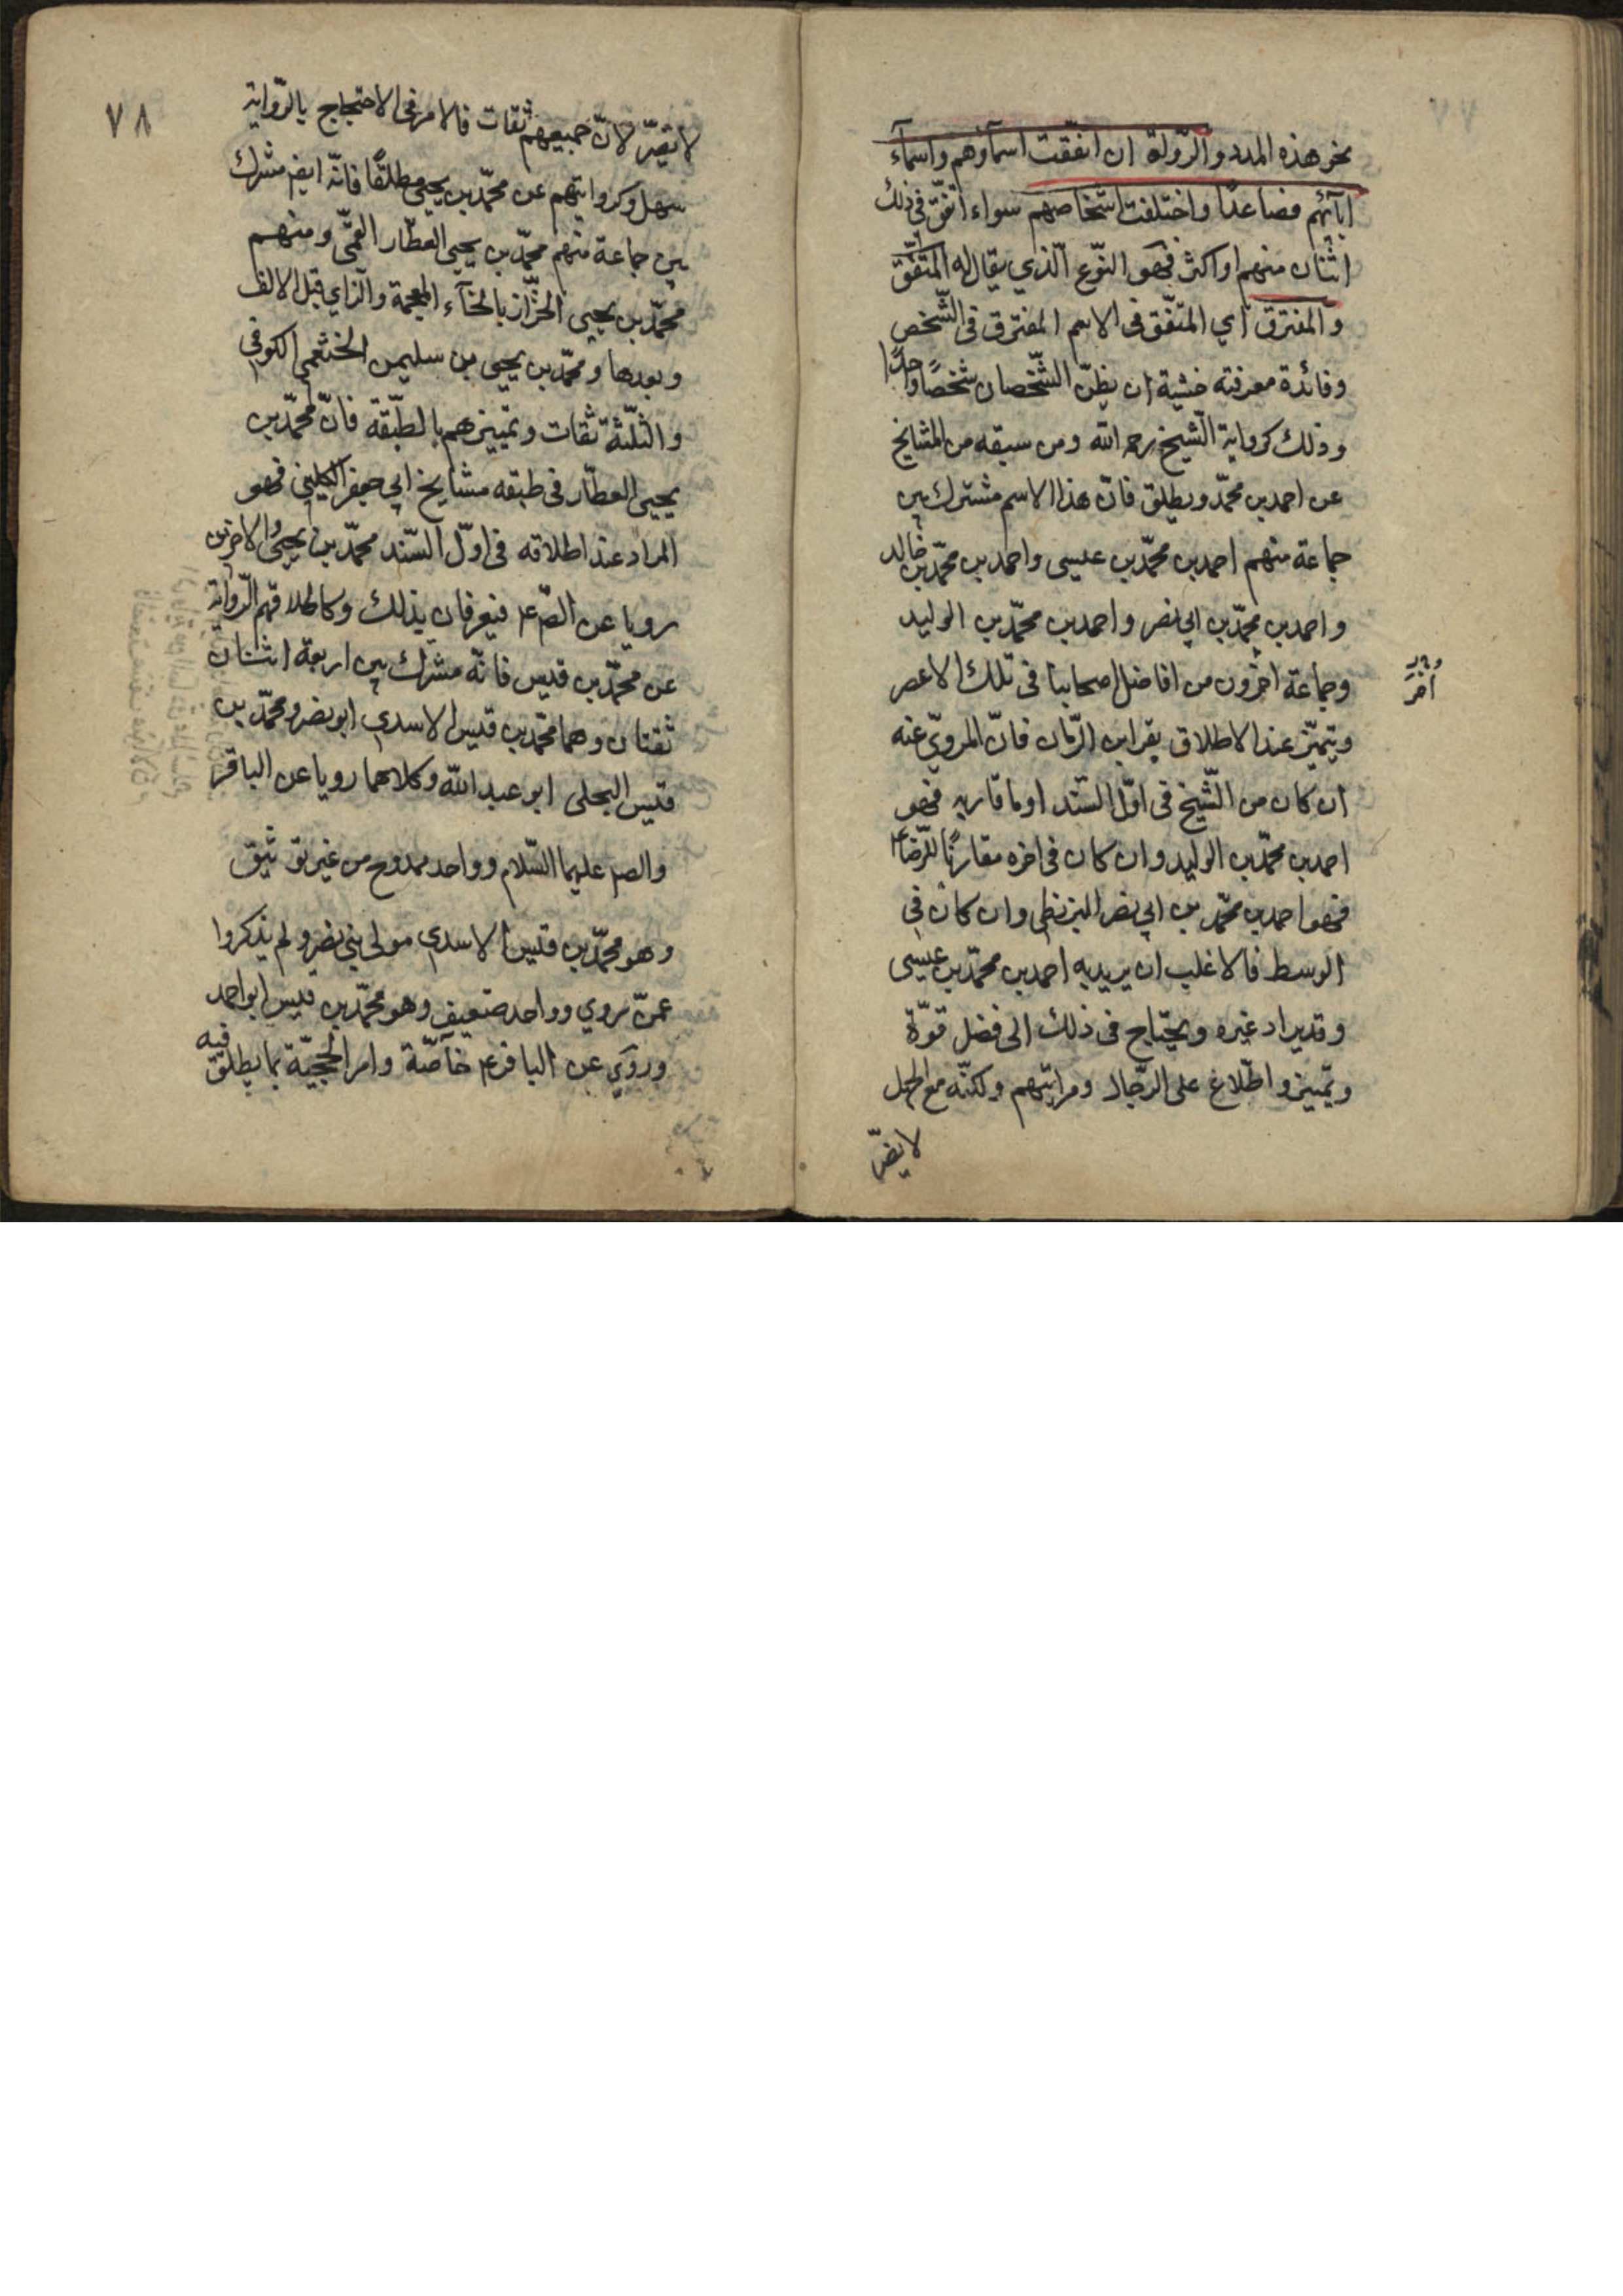 نحو هذه المدد والرّواة ان اتّفقت اسمآؤهم واسمآء
ابآئهم فصاعدًا واختلفت اشخاصهم سواء اتّفق فى ذلك
اثنان منهم او اكثر فهو النّوع الّذي يقال له المتّفق
والمفترق اي المتّفق فى الاسم المفترق فى الشّخص
وفائدة معرفته خشية ان يظنّ الشّخصان شخصًا واحدًا
وذلك كرواية الشّيخ رحمه الله ومن سبقه من المشايخ
عن احمد بن محمّد ويطلق فانّ هذا الاسم مشترك بين
جماعة منهم احمد بن محمّد بن عيسى واحمد بن محمّد بن خالد
واحمد بن محمّد بن ابي نصر واحمد بن محمّد بن الوليد
وجماعة اخرون من افاضل اصحابنا فى تلك الاعصر
ويتميّز عند الاطلاق بقراين الزّمان فانّ المرويّ عنه
ان كان من الشّيخ فى اوّل السّند او ما قاربه فهو
احمد بن محمّد بن الوليد وان كان فى اخره مقارنًا للرّضا ع
فهو احمد بن محمّد بن ابي نصر البزنطي وان كان في
الوسط فالاغلب ان يريد به احمد بن محمّد بن عيسى
وقد يراد غيره ويحتاج فى ذلك الى فضل قوّة
وتمييز واطّلاع على الرّجال ومراتبهم ولكنّه مع الجهل
لا يضرّ
اخر
٧٧
٧٨
لا يضرّ لانّ جميعهم ثقات فالامر فى الاحتجاج بالرّواية
سهل وكروايتهم عن محمّد بن يحيى مطلقًا فانّه ايض مشترك
بين جماعة منهم محمّد بن يحيى العطّار القمّى ومنهم
محمّد بن يحيى الخزّاز بالخآء المعجمة والزّاي قبل الالف
وبعدها ومحمّد بن يحيى بن سليمن الخثعمي الكوفي
والثّلثة ثقات وتمييزهم بالطّبقة فانّ محمّد بن
يحيى العطّار فى طبقه مشايخ ابي جعفر الكليني فهو
المراد عند اطلاقه فى اوّل السّند محمّد بن يحيى والاخرين
رويا عن الصّ ع فيعرفان بذلك وكاطلاقهم الرّواية
عن محمّد بن قيس فانّه مشترك بين اربعة اثنان
ثقتان وهما محمّد بن قيس الاسدي ابو نصر ومحمّد بن
قيس البجلي ابو عبد الله وكلاهما رويا عن الباقر
والص عليهما السّلام وواحد ممدوح من غير توثيق
وهو محمّد بن قيس الاسدي مولى بني نصر ولم يذكروا
عمّن يروي وواحد ضعيف وهو محمّد بن قيس ابو احمد
وروي عن الباقر ع خآصّة وامر الحجيّة بما يطلق فيه